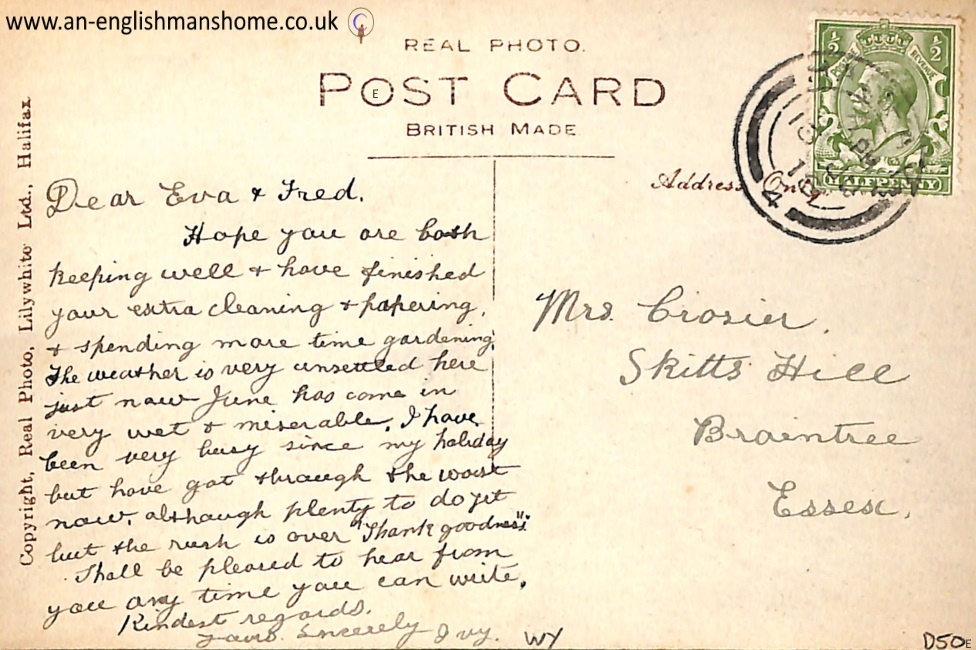 www.an-englishmanshome.co.uk
REAL PHOTO.
POST CARD
BRITISH MADE
Address Only
Copyright, Real Photo, Lilywhite Ltd., Halifax
½ ½
HALFPENNY
Dear Eva & Fred.
Hope you are both
keeping well & have finished
your extra cleaning & papering,
& spending more time gardening,
The weather is very unsettled here
just now June has come in
very wet & miserable. I have
been very busy since my holiday
but have got through the worst
now, although plenty to do yet
but the rush is over "Thank goodness".
Shall be pleased to hear from
you any time you can write.
Kindest regards.
Yours Sincerely Ivy.
Mrs. Crosier.
Skitts Hill
Braintree
Essex.
WY
D50E